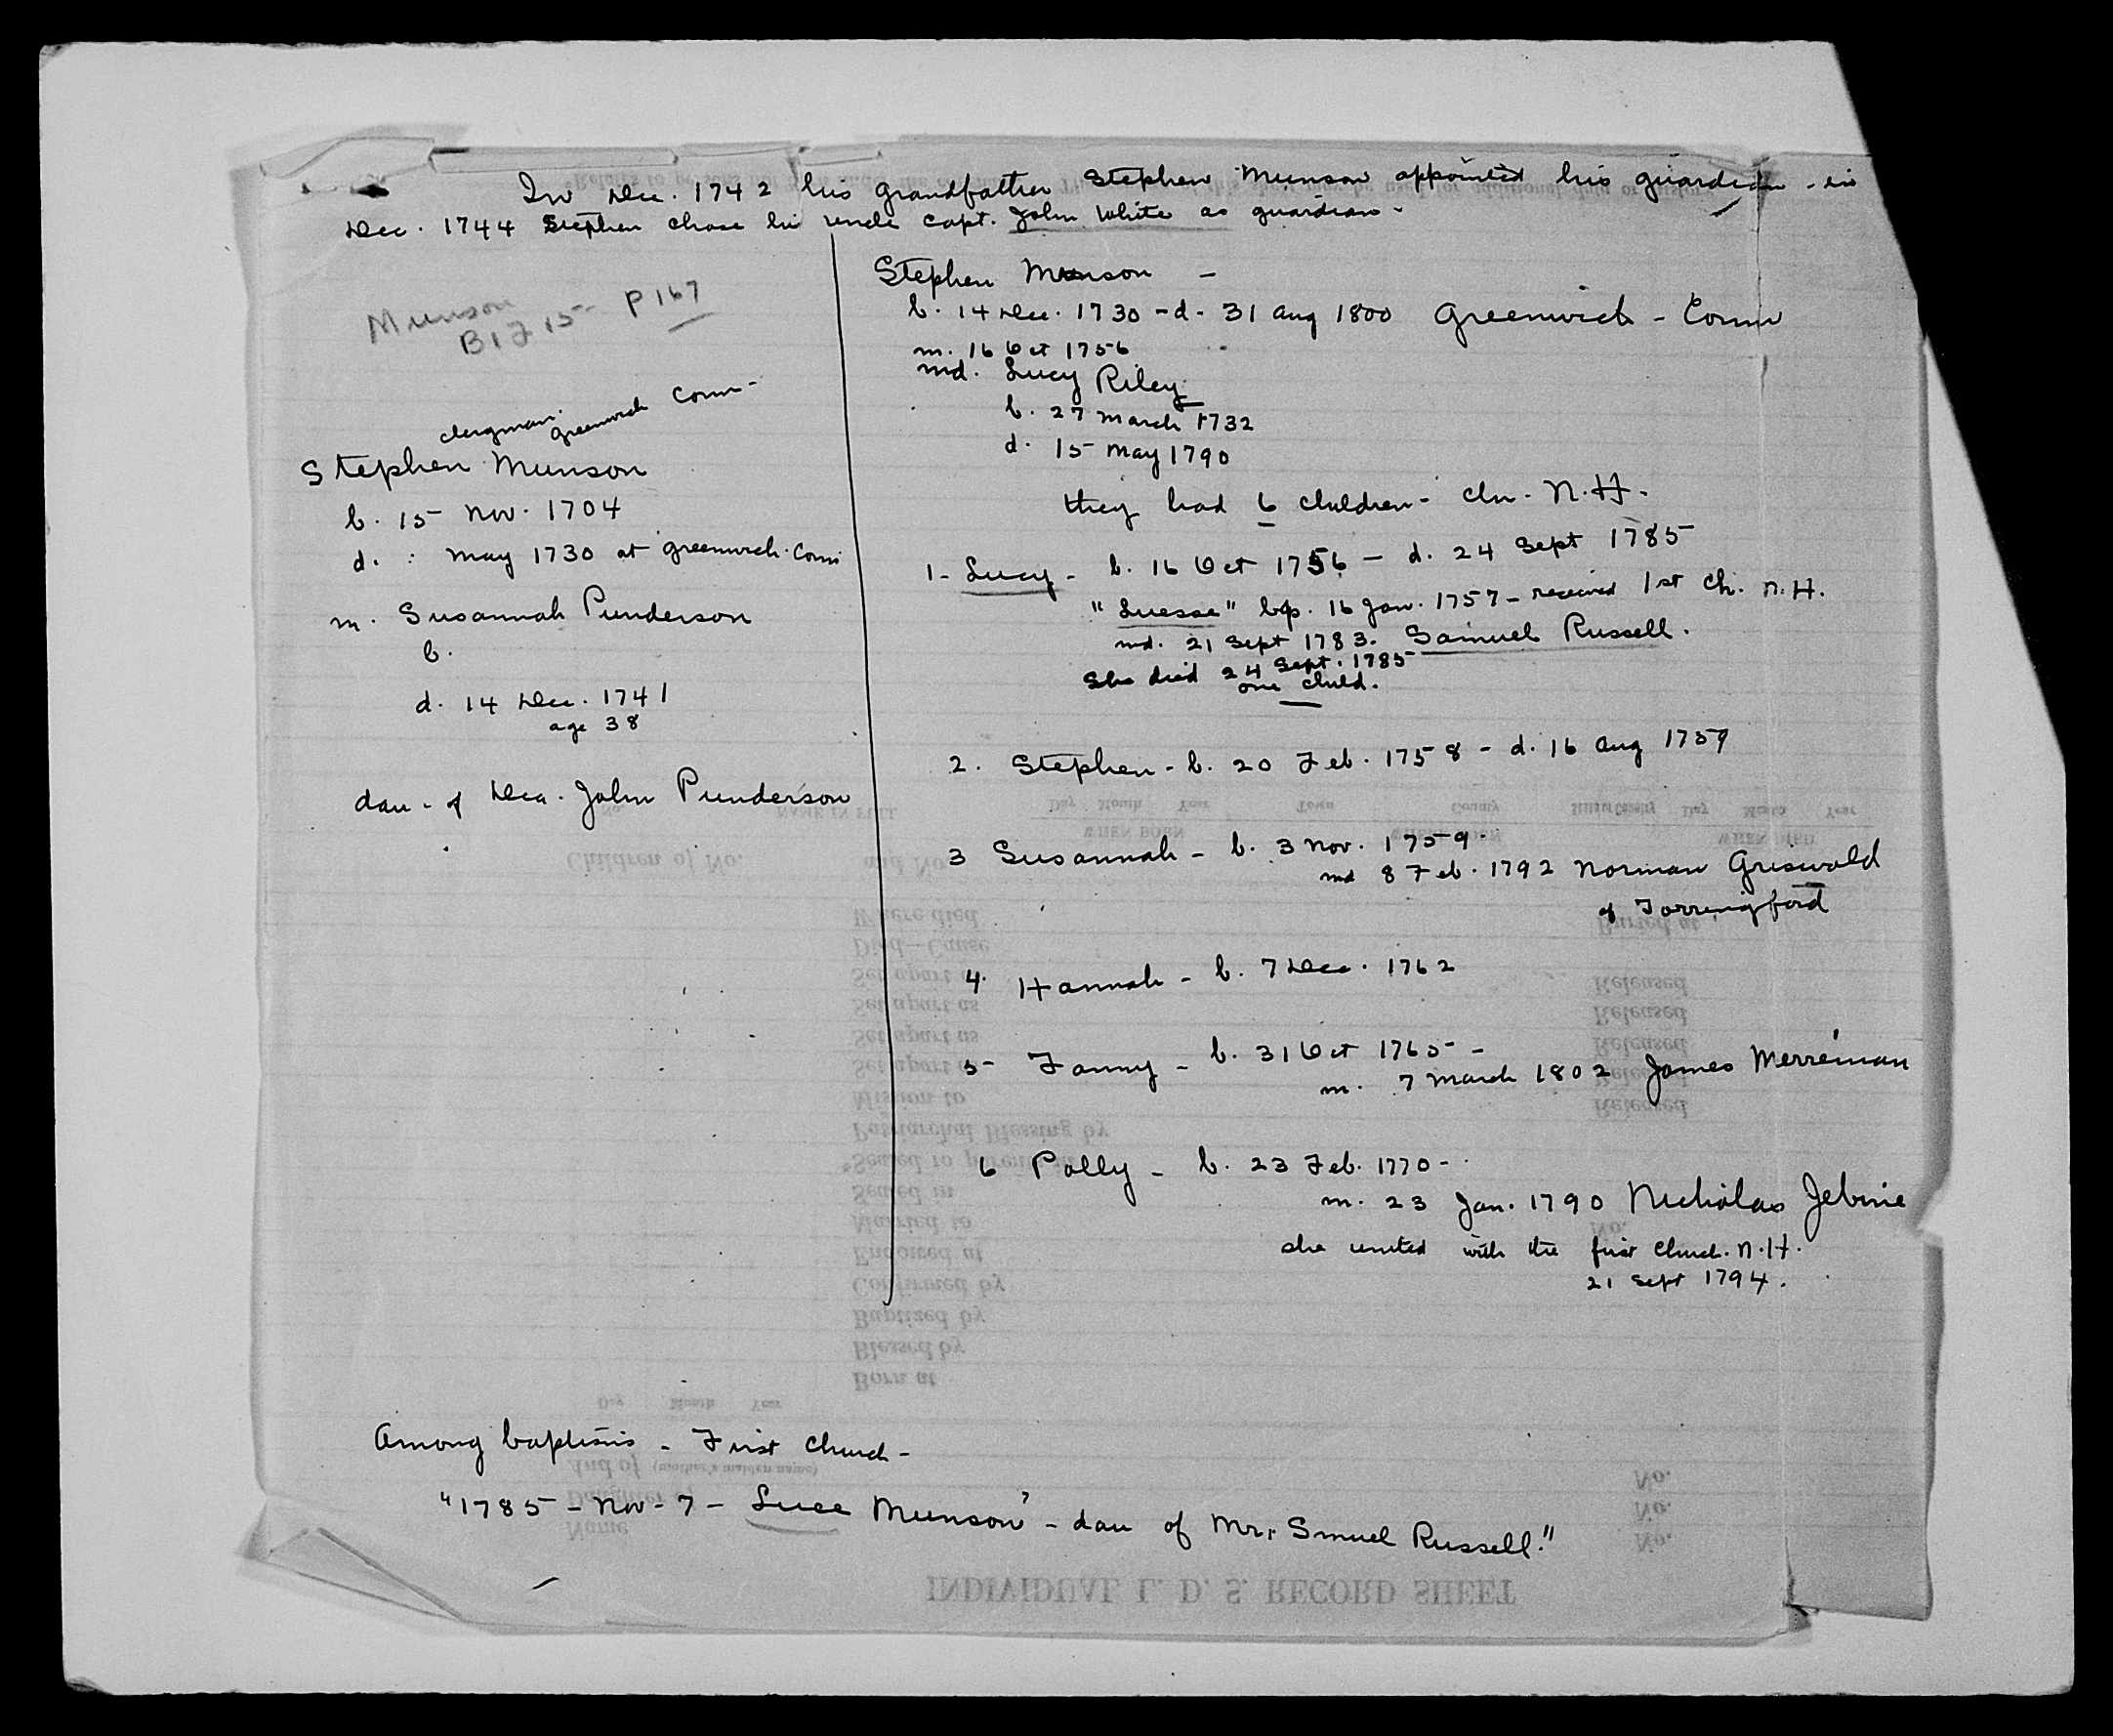 In Dec. 1742 his grandfather Stephen Munson appointed his guardian - in
Dec. 1744 Stephen chose his uncle Capt. John White as guardian -
Munson
B1F15 - P167
clergman. Greenwich Conn -
Stephen Munson
b. 15 Nov. 1704
d. : May 1730 at Greenwich. Conn
m. Susannah Punderson
b.
d. 14 Dec. 1741
age 38
dau - of Dea. John Punderson
Stephen Munson -
b. 14 Dec. 1730 - d. 31 Aug 1800 Greenwich - Conn
m. 16 Oct 1756
md. Lucy Riley
b. 27 March 1732
d. 15 May 1790
they had 6 children - chn - N. H.
1 - Lucy - b. 16 Oct 1756 - d. 24 Sept 1785
"Luesse" bp. 16 Jan. 1757 - received 1st Ch. N. H.
md. 21 Sept 1783. Samuel Russell.
She died 24 Sept. 1785
one child.
2. Stephen - b. 20 Feb. 1758 - d. 16 Aug 1759
3 Susannah - b. 3 Nov. 1759 -
md 8 Feb. 1792 Norman Griswold
of Torringford
4. Hannah - b. 7 Dec. 1762
5 - Fanny - b. 31 Oct 1765 -
m. 7 March 1802 James Merreiman
6 Polly - b. 23 Feb. 1770 -
m. 23 Jan. 1790 Nicholas Jebine
she united with the first Church. N. H.
21 Sept 1794.
Among baptisms - First Church -
"1785 - Nov - 7 - Luce Munson' - dau of Mr. Smuel Russell."
INDIVIDUAL L. D. S. RECORD SHEET